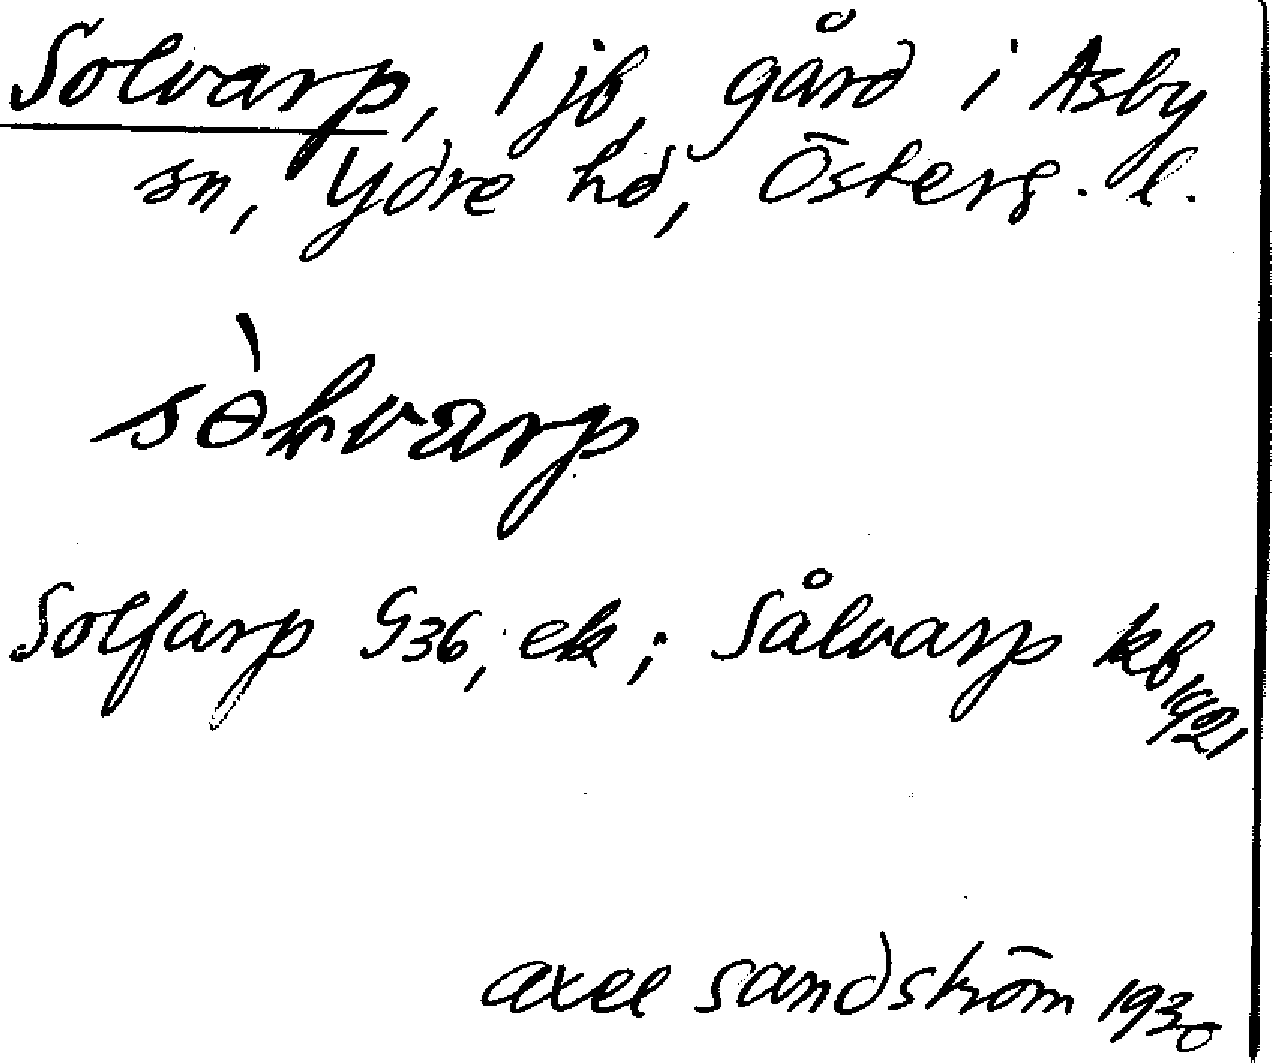 Solvarp, 1 jb, gård i Asby
sn, Ydre hd, Österg. l.
Solfarp G36, ek; Sålvarp kb 1921
axel sandström 1930